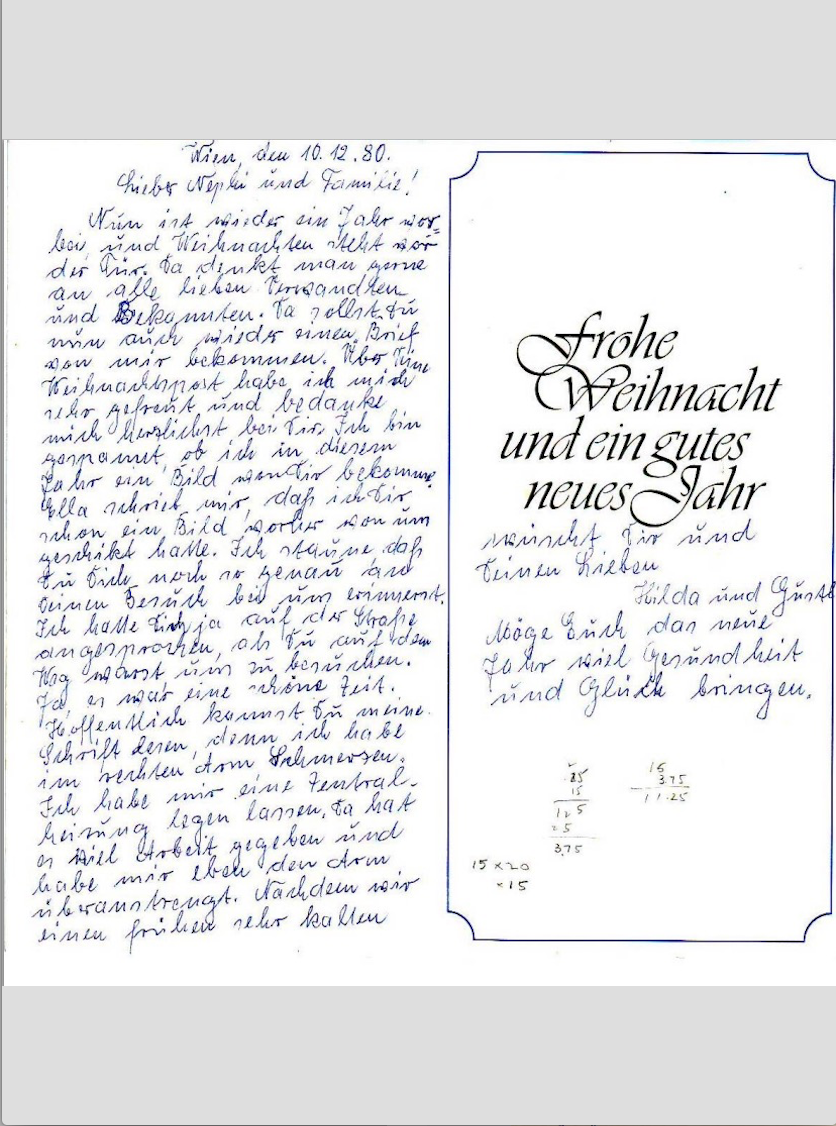 Wien, den 10.12.80.
Lieber Nephi und Familie!
Nun ist wieder ein Jahr vor=
bei, und Weihnachten steht vor
der Tür. Da denkt man gerne
an alle lieben Verwandten
und Bekannten. Da sollst Du
nun auch wieder einen Brief
von mir bekommen. Über Deine
Weihnachtspost habe ich mich
sehr gefreut und bedanke
mich herzlichst bei Dir. Ich bin
gespannt, ob ich in diesem
Jahr ein Bild von Dir bekomme.
Ella schrieb mir, daß ich Dir
schon ein Bild vorher von uns
geschikt hatte. Ich staune, daß
Du Dich noch so genau an
Deinen Besuch bei uns erinnerst.
Ich hatte Dich ja auf der Straße
angesprochen, als Du auf dem
Weg warst uns zu besuchen.
Ja, es war eine schöne Zeit.
Hoffentlich kannst Du meine
Schrift lesen, denn ich habe
im rechten Arm Schmerzen.
Ich habe mir eine Zentral-
heizung legen lassen. Da hat
es viel Arbeit gegeben und
habe mir eben den Arm
überanstrengt. Nachdem wir
einen frühen sehr kalten
Frohe
Weihnacht
und ein gutes
neues Jahr
wünscht Dir und
Deinen Lieben
Hilda und Gustl
Möge Euch das neue
Jahr viel Gesundheit
und Glück bringen.
15
3.75
11.25
15
125
25
3.75
15 x 20
x 15